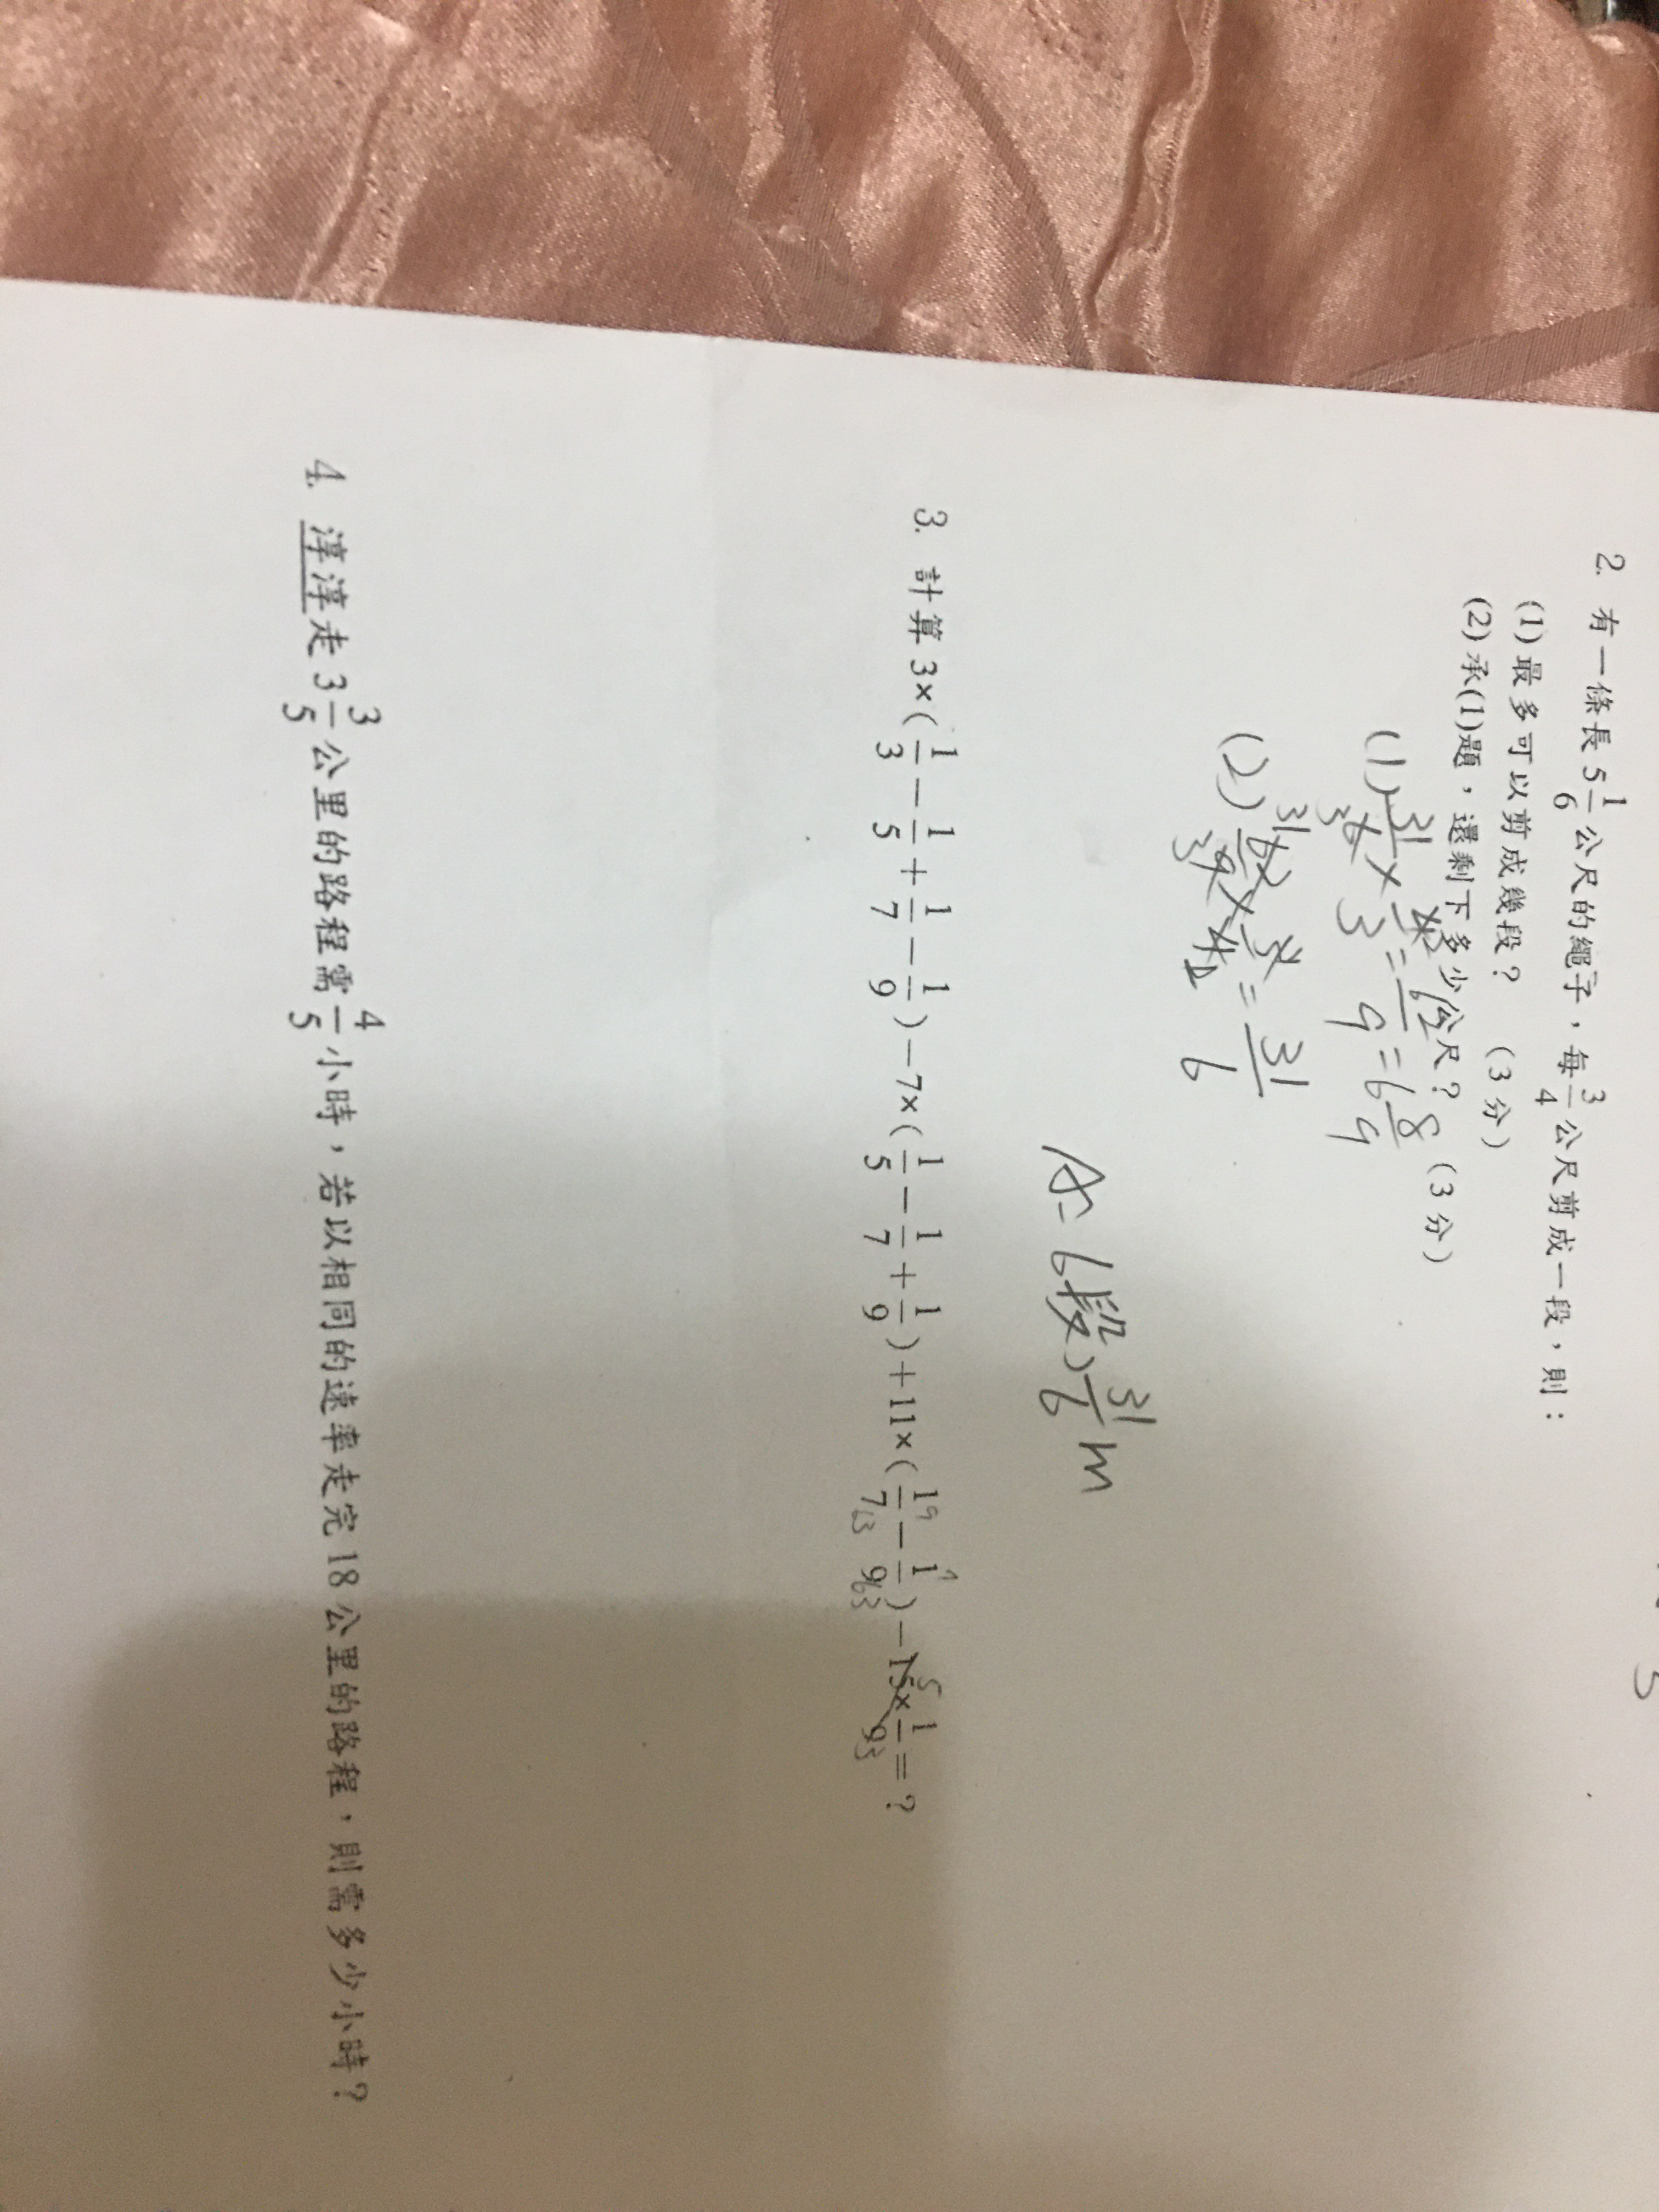 2. 有一條長 5 1/6 公尺的繩子，每 3/4 公尺剪成一段，則：
(1) 最多可以剪成幾段？ (3 分)
(2) 承(1)題，還剩下多少公尺？ (3 分)
(1) 31/6 × 4/3 = 62/9 = 6 8/9
(2) 31/6
A: 6段, 31/6 m
3. 計算 3×(1/3 − 1/5 + 1/7 − 1/9) − 7×(1/5 − 1/7 + 1/9) + 11×(1/7 − 1/9) − 15×1/9 = ?
4. 淳淳走 3 3/5 公里的路程需 4/5 小時，若以相同的速率走完 18 公里的路程，則需多少小時？